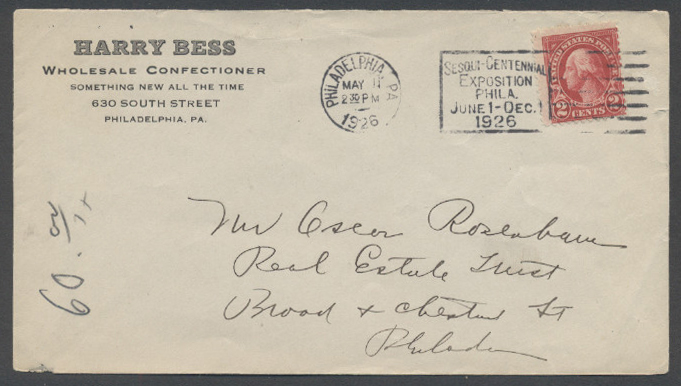 HARRY BESS
WHOLESALE CONFECTIONER
SOMETHING NEW ALL THE TIME
630 SOUTH STREET
PHILADELPHIA, PA.
PHILADELPHIA, PA
MAY 11
2 30 PM
1926
SESQUI-CENTENNIAL
EXPOSITION
PHILA.
JUNE 1-DEC. 1
1926
UNITED STATES POSTAGE
2 CENTS 2
Mr Oscar Rosenbaum
Real Estate Trust
Broad & Chestnut St
Philada
60.